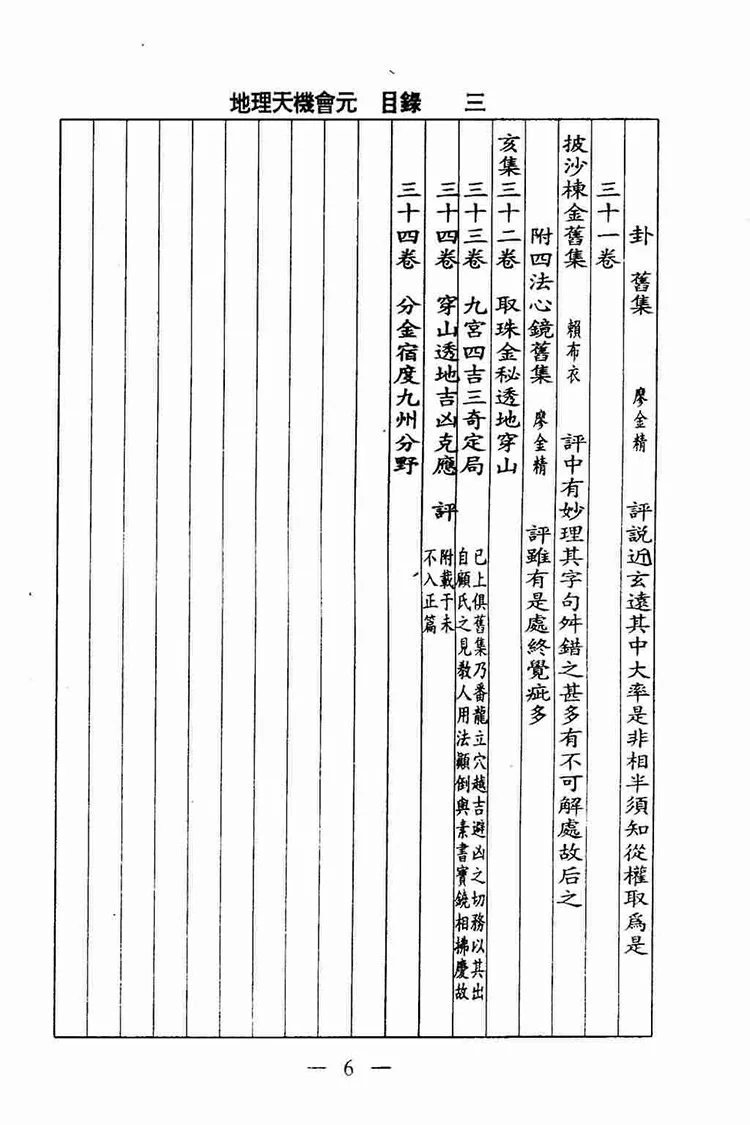 地理天機會元　目錄　三
卦　舊集　廖金精　評說近玄遠其中大率是非相半須知從權取爲是
三十一卷
披沙棟金舊集　賴布衣　評中有妙理其字句舛錯之甚多有不可解處故后之
附四法心鏡舊集　廖金精　評雖有是處終覺疵多
亥集三十二卷　取珠金秘透地穿山
三十三卷　九宮四吉三奇定局
三十四卷　穿山透地吉凶克應　評
已上俱舊集乃番龍立穴趨吉避凶之切務以其出
自顧氏之見教人用法顚倒與素書寶鏡相拂慶故
附載于未
不入正篇
三十四卷　分金宿度九州分野
— 6 —